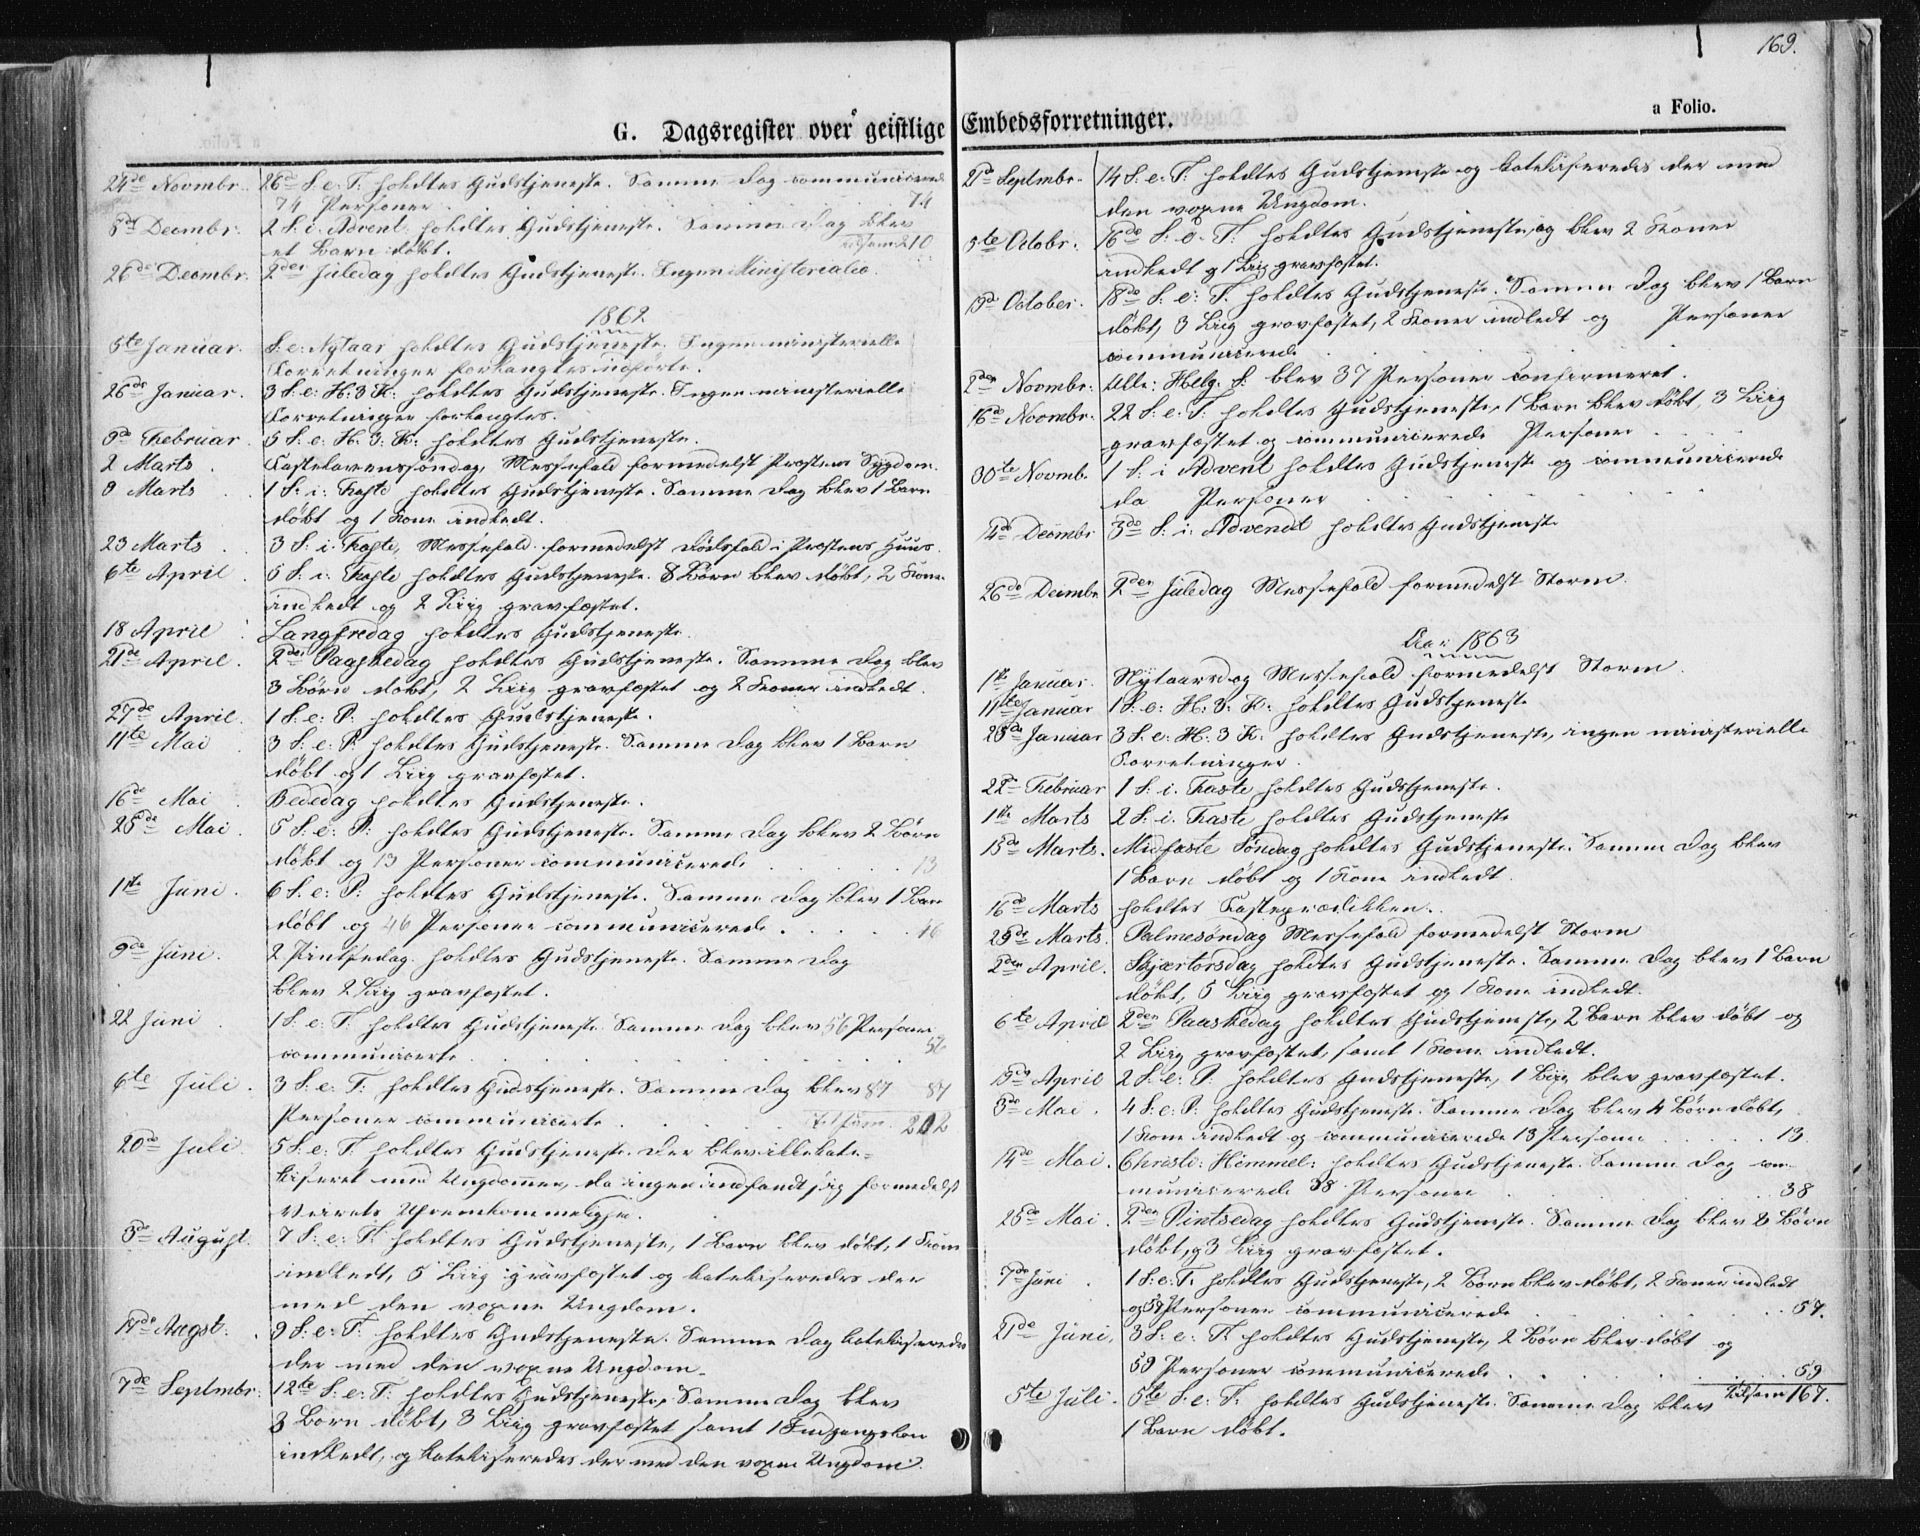 169.
a Folio.
G. Dagsregister over geistlige Embedsforretninger.
24de Novmbr. 26de S. e. T. holdtes Gudstjeneste. Samme Dag communicered
74 Personer . . . 74
8de Decmbr. 2 S. i. Advent holdtes Gudstjeneste. Samme Dag blev
et Barn døbt. tilsam 210
26de Decmbr. 2den Juledag holdtes Gudstjeneste. Ingen Ministerialia.
1862
5te Januar. S. e. Nytaar holdtes Gudstjeneste. Ingen ministerielle
Forretninger forlangtes udførte.
26de Januar. 3 S. e. H. 3 K. holdtes Gudstjeneste. Ingen ministerielle
Forretninger forlangtes.
9de Februar. 5 S. e. H. 3. K. holdtes Gudstjeneste.
2 Marts. Fastelavenssøndag, Messefald formedelst Provstens Sygdom.
9 Marts. 1 S. i. Faste holdtes Gudstjeneste. Samme Dag blev 1 Barn
døbt og 1 Kone indledt.
23 Marts. 3 S. i. Faste, Messefald formedelst Dødsfald i Provstens Huus.
6te April. 5 S. i. Faste holdtes Gudstjeneste. 8 Børn blev døbt, 2 Kone
indledt og 2 Liig gravfæstet.
18 April. Langfredag holdtes Gudstjeneste.
21de April. 2den Paaskedag holdtes Gudstjeneste. Samme Dag blev
3 Børn døbt, 2 Liig gravfæstet og 2 Koner indledt.
27de April. 1 S. e. P. holdtes Gudstjeneste.
11te Mai. 3 S. e. P. holdtes Gudstjeneste. Samme Dag blev 1 Barn
døbt og 1 Liig gravfæstet.
16de Mai. Bededag holdtes Gudstjeneste.
25de Mai. 5 S. e. P. holdtes Gudstjeneste. Samme Dag blev 2 Børn
døbt og 13 Personer communicerede . . . 13
1ste Juni. 6 S. e. P. holdtes Gudstjeneste. Samme Dag blev 1 Barn
døbt og 46 Personer communicerede . . . 46
9de Juni. 2 Pintsedag holdtes Gudstjeneste. Samme Dag
blev 2 Liig gravfæstet.
22 Juni. 1 S. e. T. holdtes Gudstjeneste. Samme Dag blev 56 Personer
communicerte . . . 56
6te Juli. 3 S. e. T. holdtes Gudstjeneste. Samme Dag blev 87 87
Personer communicerte . . . tilsam. 202
20de Juli. 5 S. e. T. holdtes Gudstjeneste. Der blev ikke kate-
kiseret med Ungdommen, da ingen indfandt sig formedelst
Veirets Ufremkommelighed.
3de August. 7 S. e. T. holdtes Gudstjeneste, 1 Barn blev døbt, 1 Kone
indledt, 5 Liig gravfæstet og katekiseredes der
med den voxne Ungdom.
17de Augst. 9 S. e. T. holdtes Gudstjeneste. Samme Dag katekiseredes
der med den voxne Ungdom.
7de Septmbr. 12te S. e. T. holdtes Gudstjeneste, Samme Dag blev
3 Børn døbt, 3 Liig gravfæstet samt 1 Indgangskone
indledt, og katekiseredes der med den voxne Ungdom.
21de Septmbr. 14 S. e. T. holdtes Gudstjeneste og katekiseredes der med
den voxne Ungdom.
5te Octobr. 16de S. e. T. holdtes Gudstjeneste, og blev 2 Koner
indledt og 1 Liig gravfæstet.
19de October. 18de S. e. T. holdtes Gudstjeneste. Samme Dag blev 1 Barn
døbt, 3 Liig gravfæstet, 2 Koner indledt og Personer
communicerede
2den Novmbr. Alle: Helg. S. blev 37 Personer confirmeret.
16de Novmbr. 22 S. e. T. holdtes Gudstjeneste, 1 Barn blev døbt 3 Liig
gravfæstet og communicerede Personer
30te Novmb. 1 S. i Advent holdtes Gudstjeneste og communicerede
da Personer
14de Decmbr 3de S. i. Advendt holdtes Gudstjeneste
26de Decmbr 2den Juledag Messefald formedelst Storm.
Aar 1863
1ste Januar. Nytaarsdag Messefald formedelst Storm.
11te Januar 1 S. e. H. 3. K. holdtes Gudstjeneste
25de Januar 3 S. e. H. 3 K. holdtes Gudstjeneste, ingen ministerielle
Forretninger.
22de Februar 1 S. i. Faste holdtes Gudstjeneste.
1ste Marts 2 S. i. Faste holdtes Gudstjeneste
15de Marts. Midfaste Søndag holdtes Gudstjeneste. Samme Dag blev
1 Barn døbt og 1 Kone indledt.
16de Marts holdtes Fasteprædikken.
29de Marts. Palmesøndag Messefald formedelst Storm
2den April. Skjærtorsdag holdtes Gudstjeneste. Samme Dag blev 1 Barn
døbt, 5 Liig gravfæstet og 1 Kone indledt.
6te April 2den Paaskedag holdtes Gudstjeneste, 2 Barn blev døbt og
2 Liig gravfæstet, samt 1 Kone indledt.
19de April 2 S. e. P. holdtes Gudstjeneste, 1 Liig blev gravfæstet.
3de Mai. 4 S. e. P. holdtes Gudstjeneste. Samme Dag blev 4 Børn døbt,
1 Kone indledt og communicerede 13 Personer . . . 13
14de Mai. Christi: Himmel: holdtes Gudstjeneste. Samme Dag com-
municerede 38 Personer . . . 38
25de Mai. 2den Pintsedag holdtes Gudstjeneste. Samme Dag blev 2 Børn
døbt, og 3 Liig gravfæstet.
7de Juni 1 S. e. T. holdtes Gudstjeneste, 2 Børn blev døbt, 2 Koner indledt
og 57 Personer communicerede . . . 57.
21de Juni, 3 S. e. T. holdtes Gudstjeneste, 2 Børn blev døbt og
59 Personer communicerede . . . 59
5te Juli. 5te S. e. T. holdtes Gudstjeneste. Samme Dag blev tilsam 167.
1 Barn døbt.